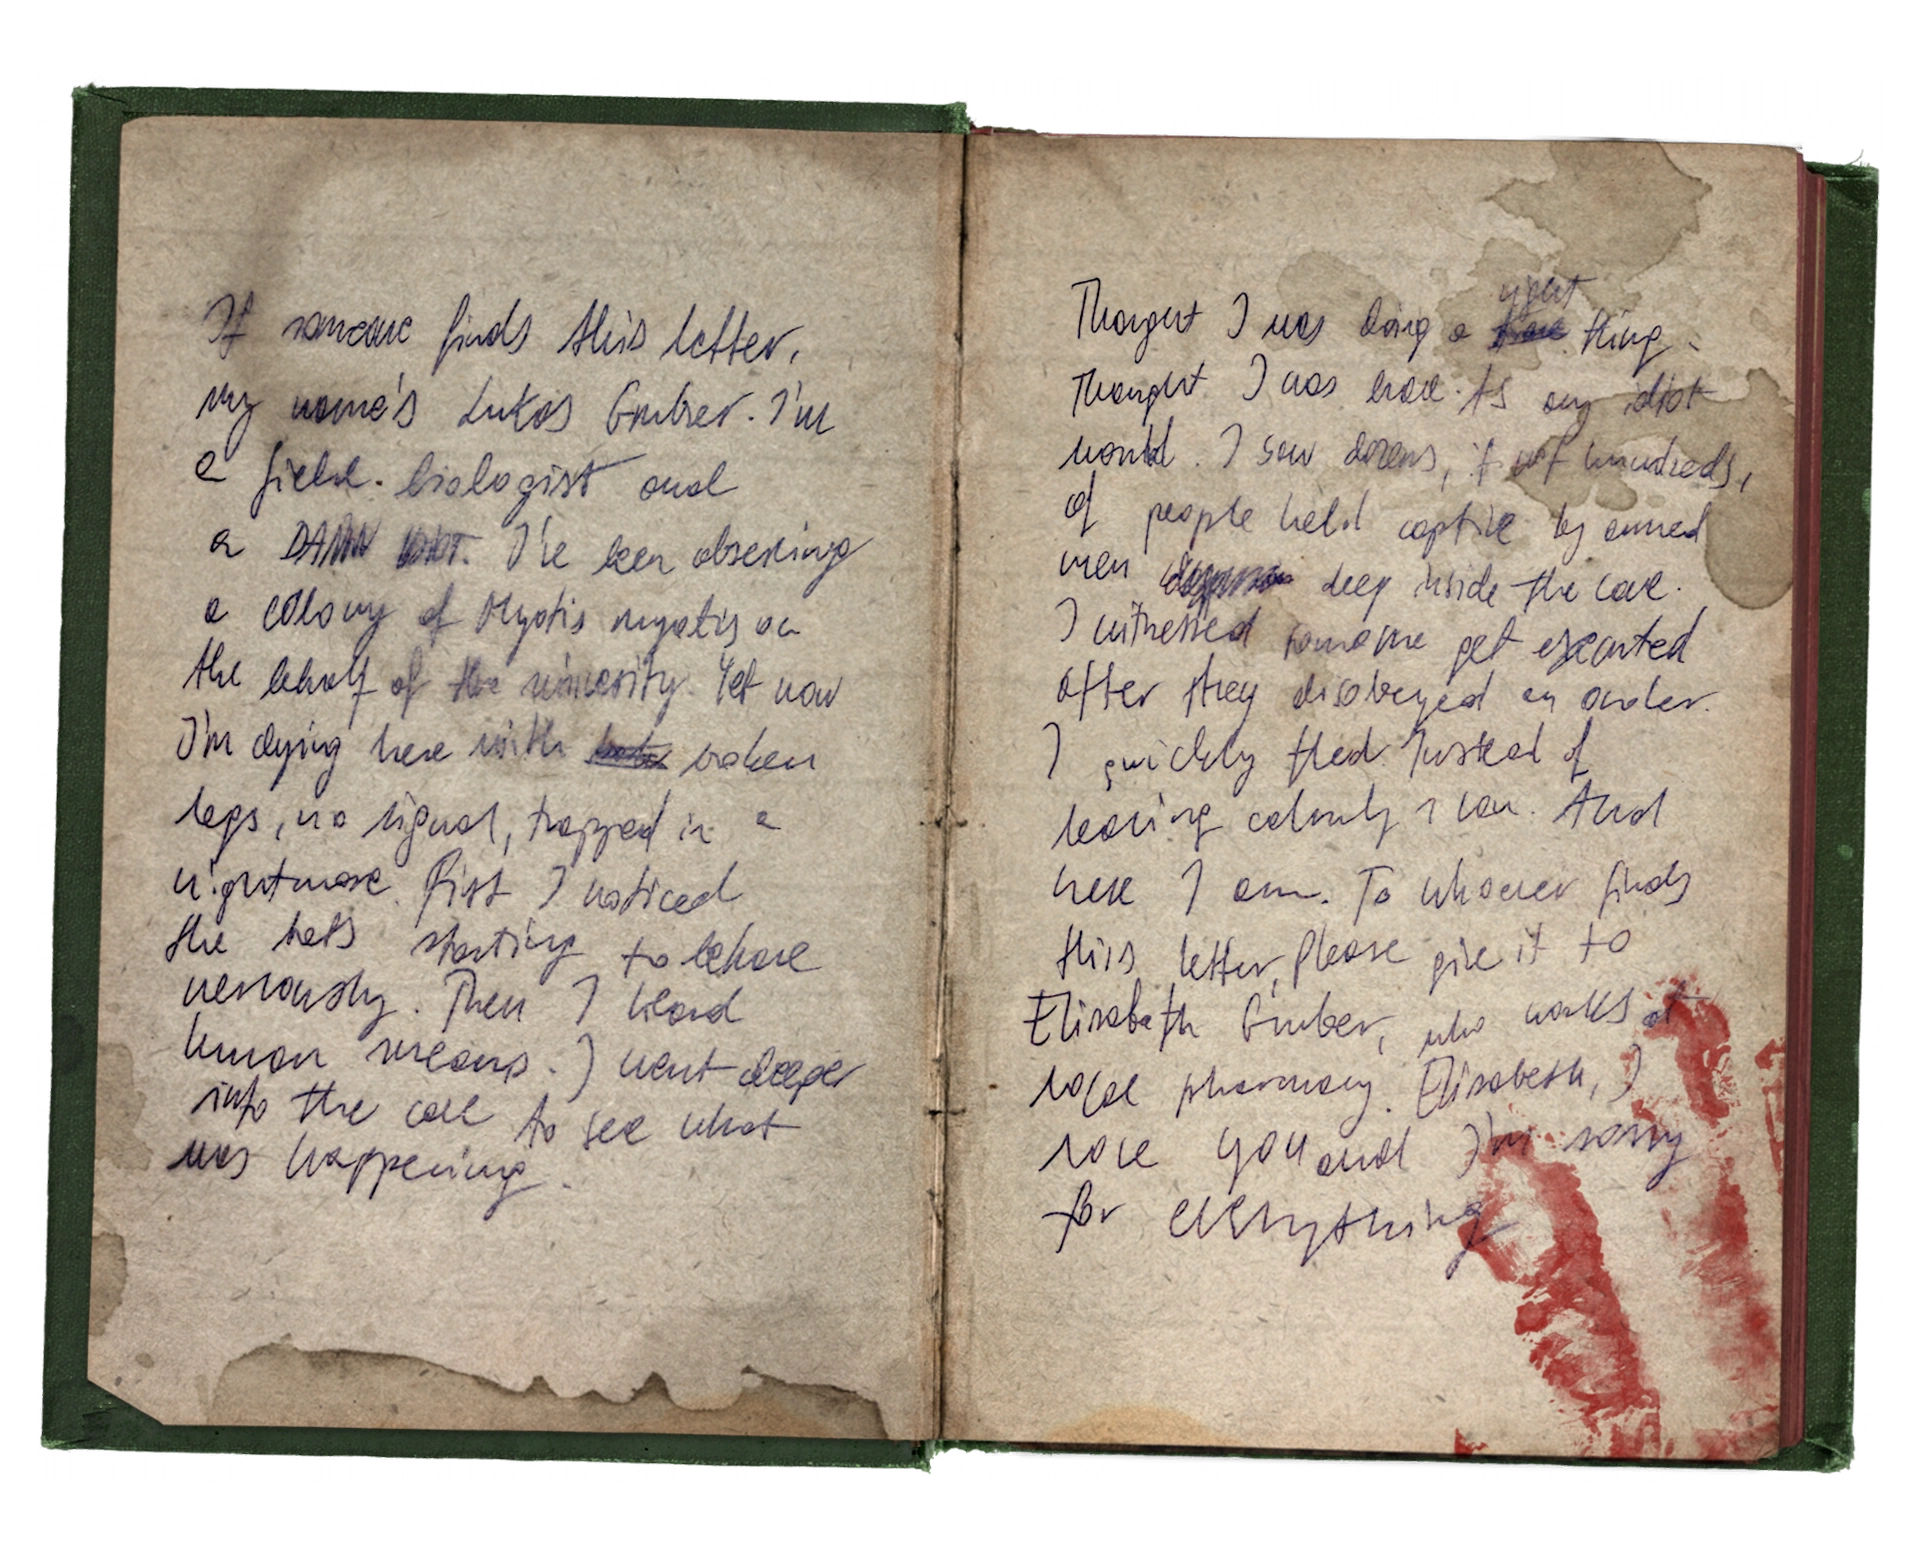 If someone finds this letter,
my name's Lukas Gruber. I'm
a field biologist and
a DAMN IDIOT. I've been observing
a colony of Myotis myotis on
the behalf of the university. Yet now
I'm dying here with broken
legs, no signal, trapped in a
nightmare. First I noticed
the bats starting to behave
nervously. Then I heard
human screams. I went deeper
into the cave to see what
was happening.
Thought I was doing a right thing.
Thought I was brave. As any idiot
would. I saw dozens, if not hundreds,
of people held captive by armed
men deep inside the cave.
I witnessed someone get executed
after they disobeyed an order.
I quickly fled. Instead of
leaving calmly I ran. And
here I am. To whoever finds
this letter, Please give it to
Elisabeth Gruber, who works at
local pharmacy. Elisabeth, I
love you and I'm sorry
for everything